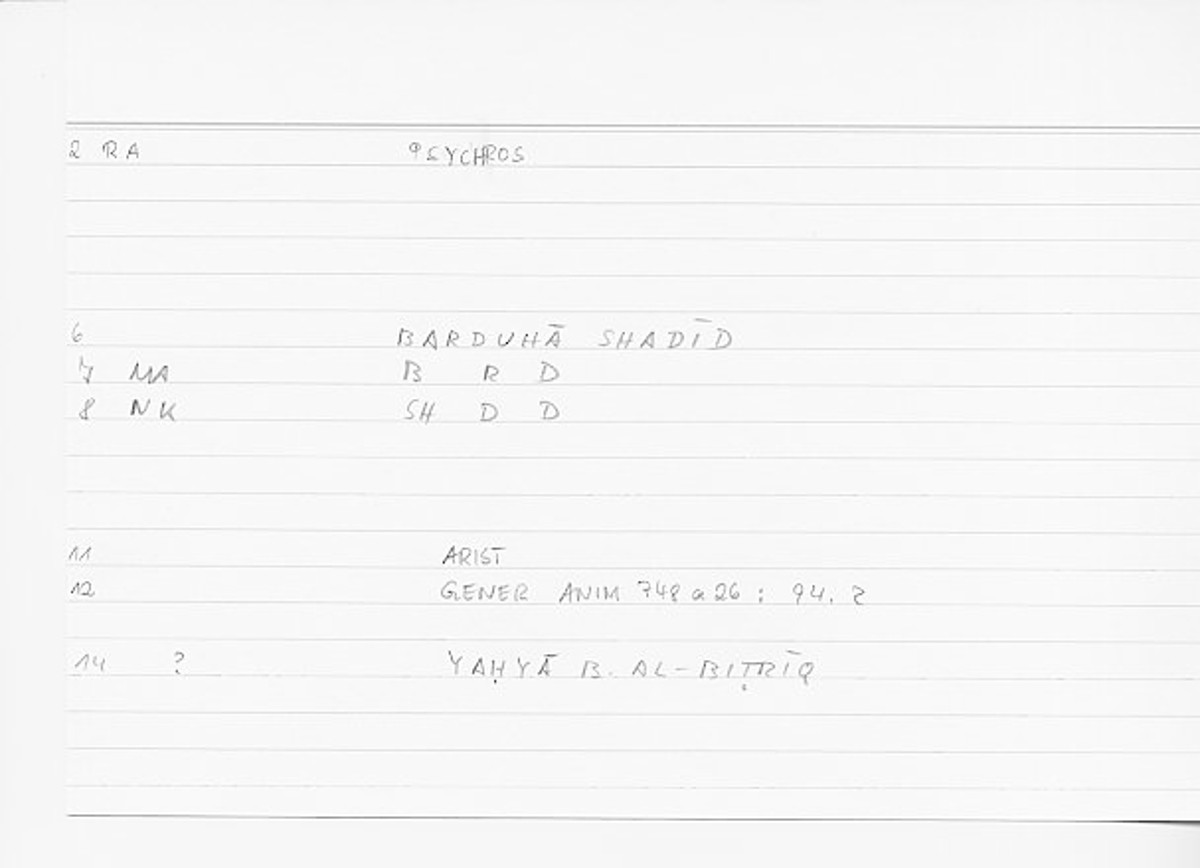 2 RA PSYCHROS
6 BARDUHĀ SHADĪD
7 MA B R D
8 NK SH D D
11 ARIST
12 GENER ANIM 748 a 26 : 94. 2
14 ? YAḤYĀ B. AL-BIṬRĪQ